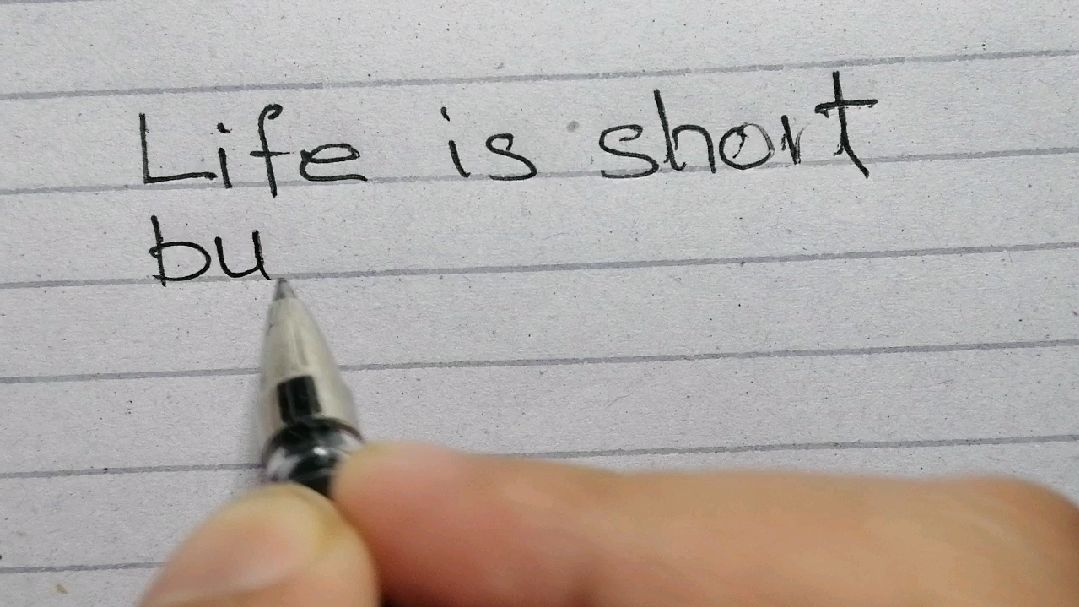 Life is short
bu